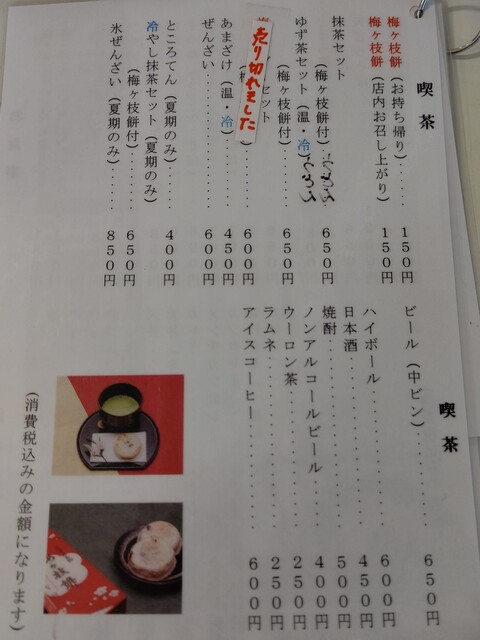 喫茶
梅ヶ枝餅(お持ち帰り)......150円
梅ヶ枝餅(店内お召し上がり)150円
抹茶セット
(梅ヶ枝餅付)......650円
ゆず茶セット(温・冷)
(梅ヶ枝餅付)......650円
売り切れました
セット
600円
あまざけ(温・冷)......450円
ぜんざい......600円
ところてん(夏期のみ)......400円
冷やし抹茶セット(夏期のみ)
(梅ヶ枝餅付)......650円
氷ぜんざい(夏期のみ)......850円
喫茶
ビール(中ビン)......650円
ハイボール......600円
日本酒......450円
焼酎......500円
ノンアルコールビール......400円
ウーロン茶......250円
ラムネ......250円
アイスコーヒー......600円
(消費税込みの金額になります)